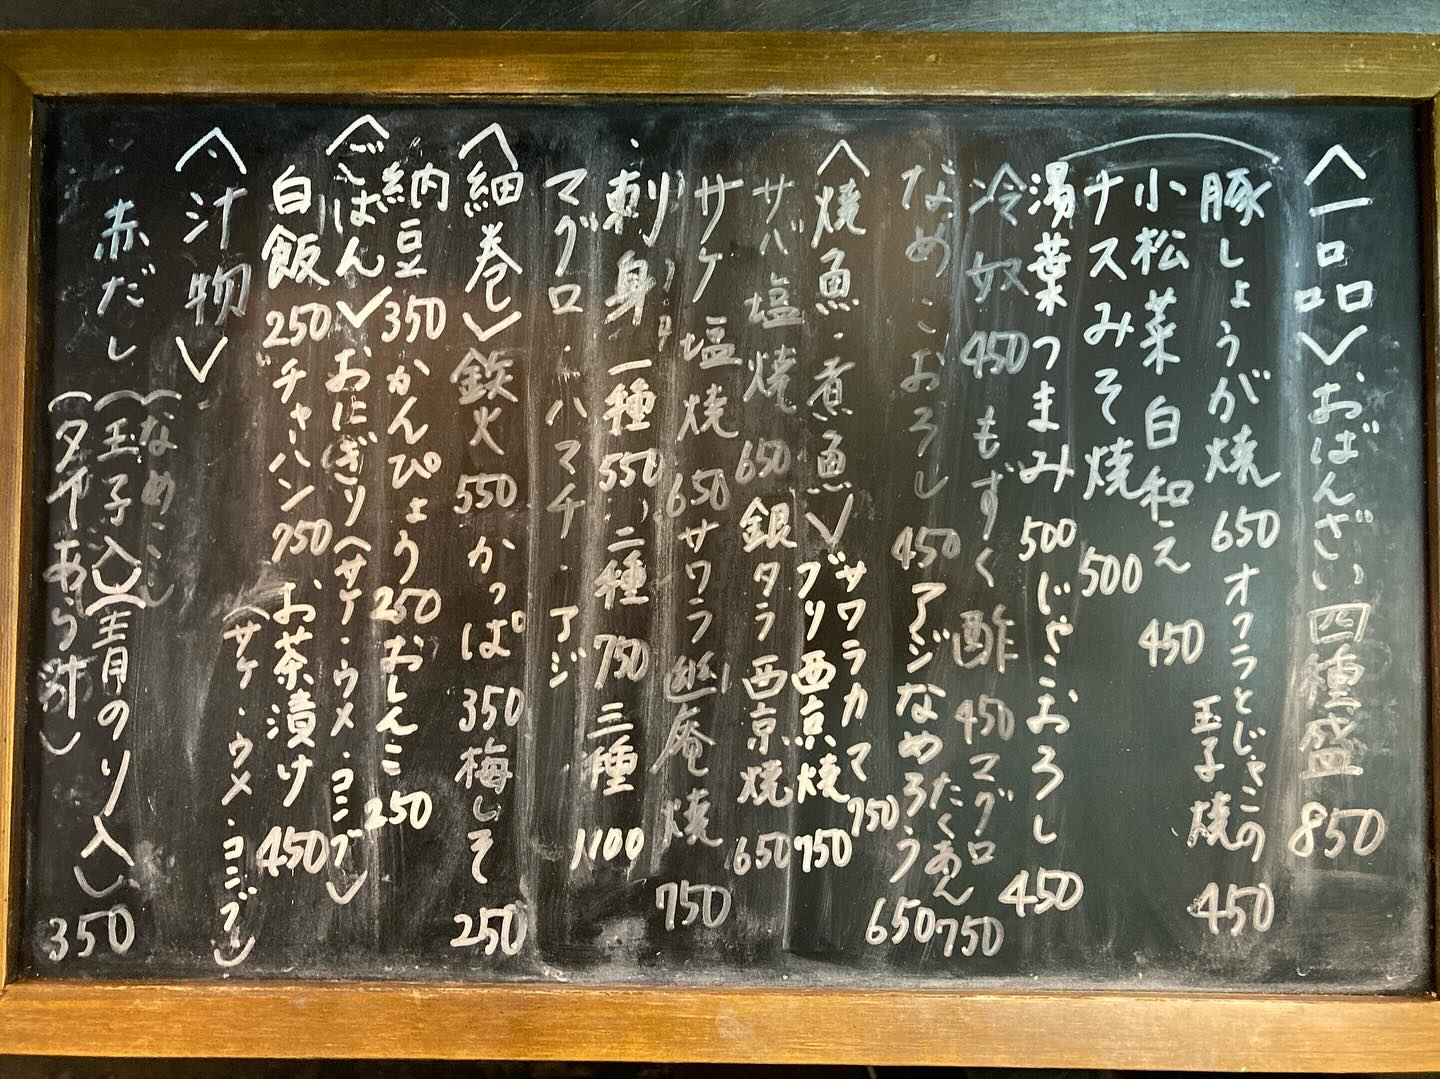 〈一品〉おばんざい四種盛 850
豚しょうが焼 650 オクラとじゃこの玉子焼 450
小松菜白和え 450
ナスみそ焼 500
湯葉つまみ 500 じゃこおろし 450
冷奴 450 もずく酢 450 マグロたくあん 750
なめこおろし 450 アジなめろう 650
〈焼魚・煮魚〉サワラカマ 750 ブリ西京焼 750
サバ塩焼 650 銀タラ西京焼 650
サケ塩焼 650 サワラ幽庵焼 750
刺身 一種 550 二種 750 三種 1100
マグロ・ハマチ・アジ
〈細巻〉鉄火 550 かっぱ 350 梅しそ 250
納豆 350 かんぴょう 250 おしんこ 250
〈ごはん〉おにぎり(サケ・ウメ・コンブ)
白飯 250 チャーハン 750 お茶漬け 450
(サケ・ウメ・コンブ)
〈汁物〉
赤だし(なめこ)
(玉子入)(青のり入)
(タイあら汁) 350